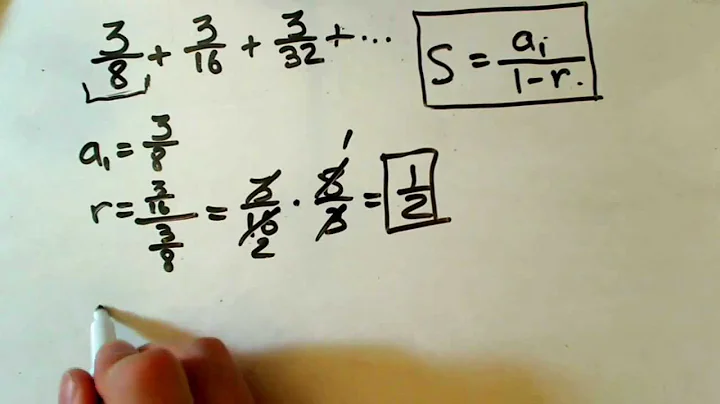 3/8 + 3/16 + 3/32 + ... S = a₁/(1-r.)
a₁ = 3/8
r = (3/16)/(3/8) = 3/16 2 · 8/3 1 = 1/2